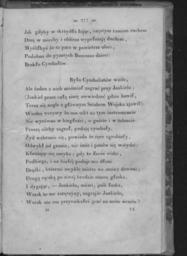 — 277 —
Jak gdyby w skrzydła bijąc,
Dmą w miechy i
Myśliłbyś że
Podobni do pyzatych Bernina dzieci:
Brakło Cymbalistów.
Było Cymbalistów wielu,
Ale żaden z nich nieśmiał zagrać przy Jankielu;
(Jankiel przez całą zimę niewiedzieć gdzie bawił,
Teraz się nagle z głównym Sztabem Wojska zjawił.)
Wiedzą wszyscy że mu nikt na tym instrumencie
Nie wyrówna w biegłości, w guście i w talencie.
Proszą ażeby zagrał, podają cymbały,
Żyd wzbrania się, powiada że ręce zgrubiały,
Odwykł od grania, nie śmie i panów się wstydzi;
Kłaniając się umyka; gdy to Zosia widzi,
Podbiega, i na białéj podaje mu dłoni
Drążki, któremi zwykle mistrz we struny dzwoni;
Drugą rączką po siwéj brodzie starca głaska,
I dygając, — Jankielu, mówi, jeśli łaska,
Wszak to me zaręczyny, zagrajże Jankielu,
Wszak nie raz przyrzekałeś grać na mém weselu?